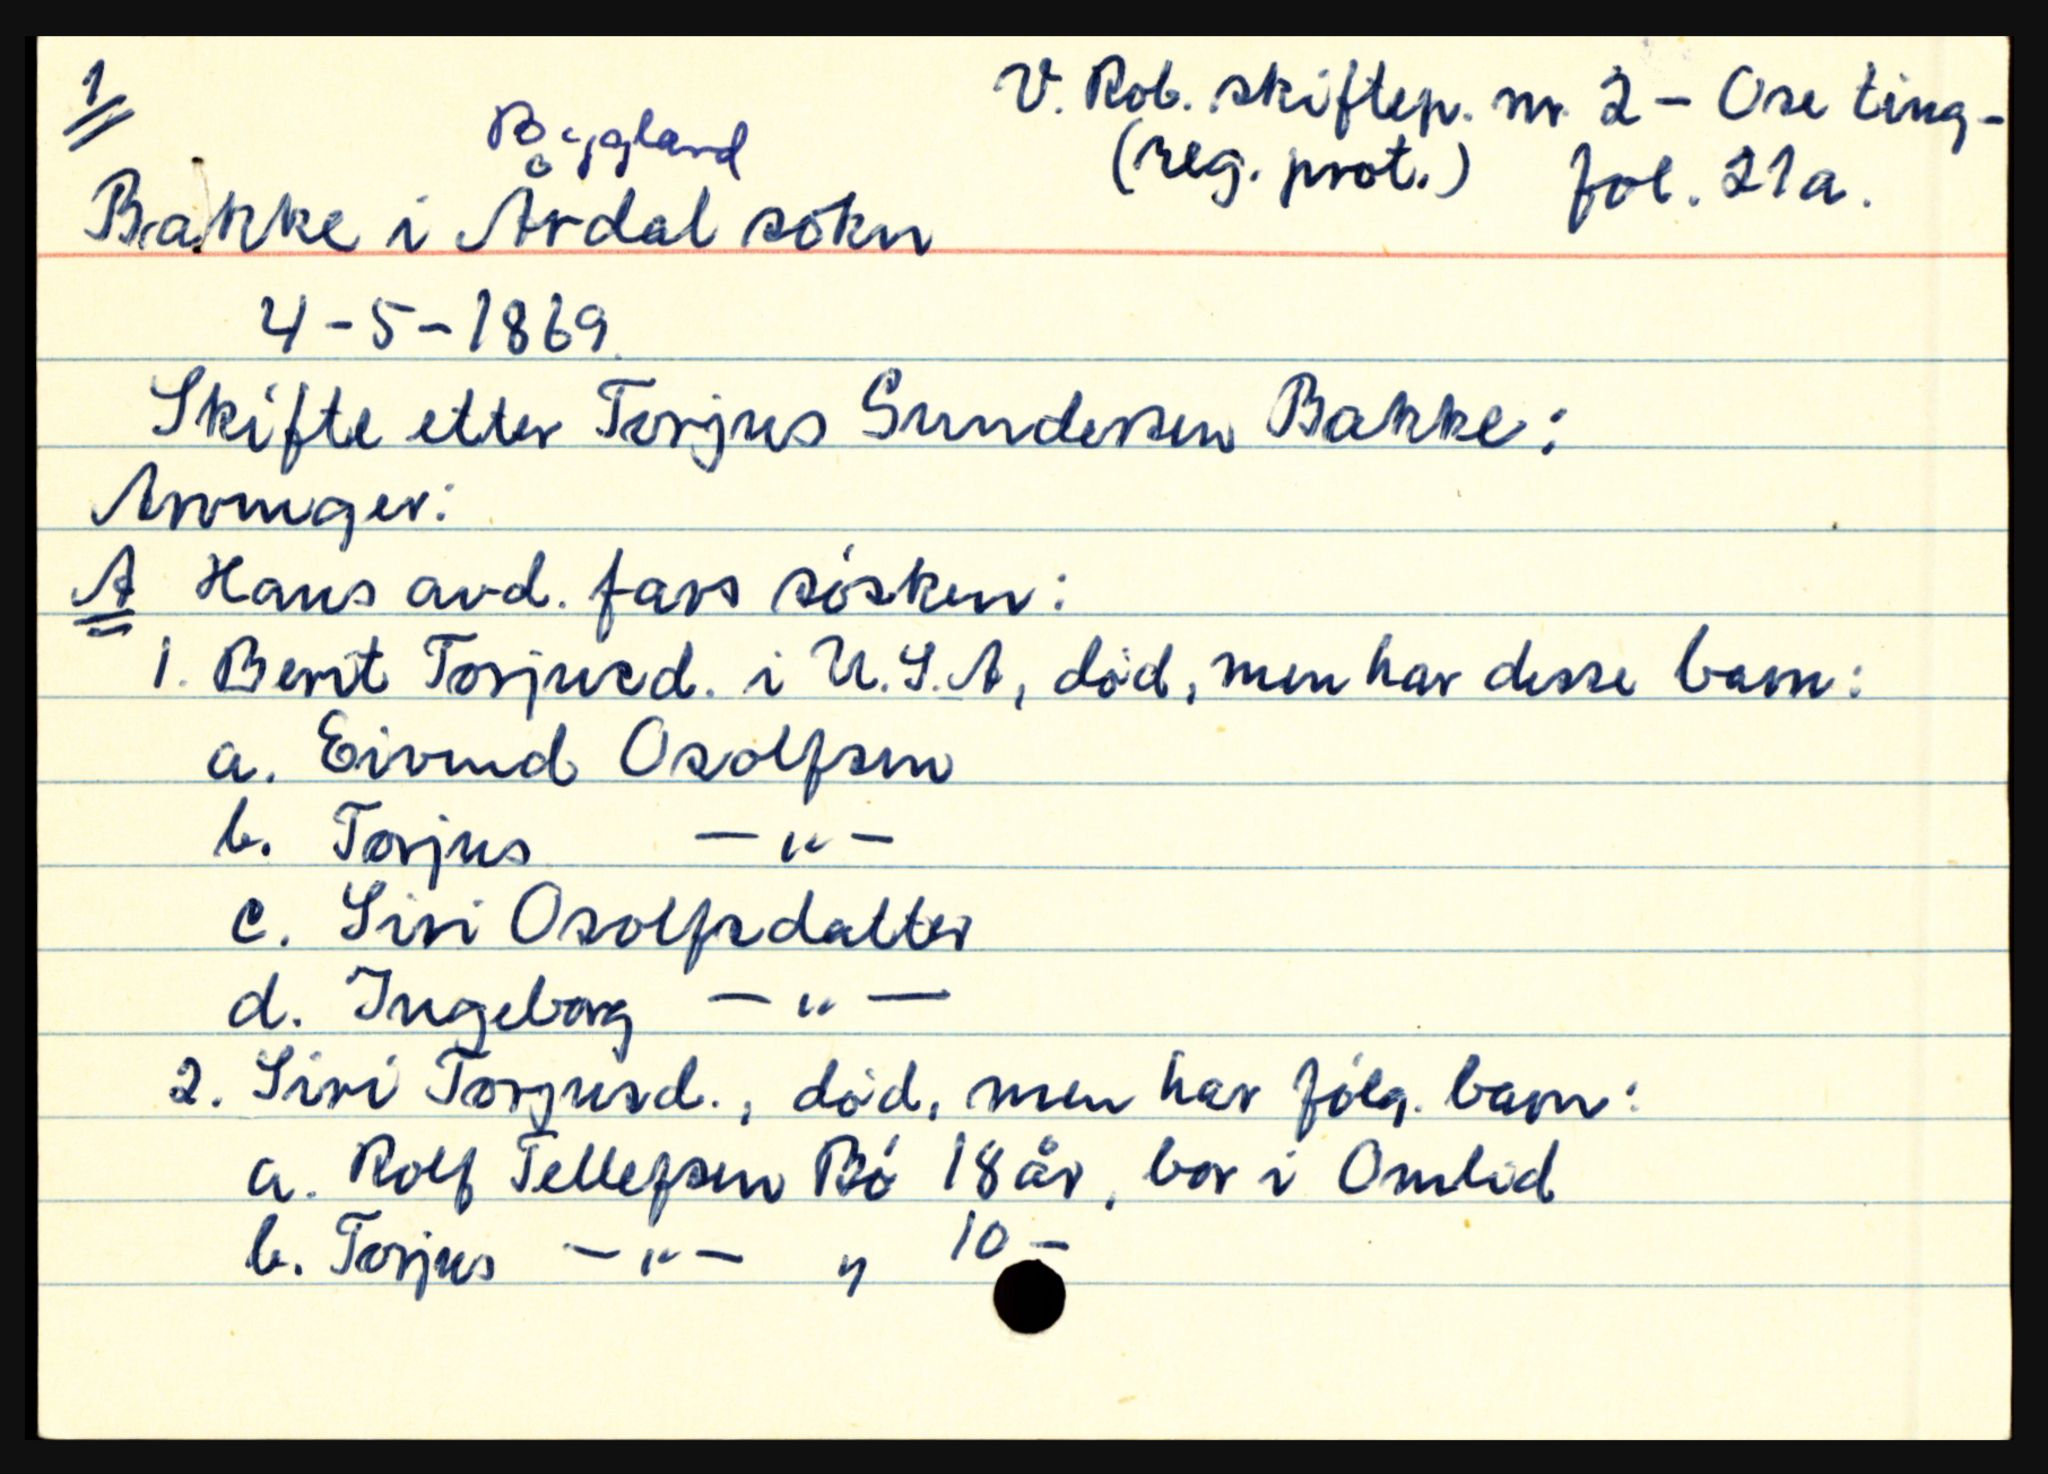 1
V. Rob. skiftep. nr. 2 - Ose ting-
(reg. prot.) fol. 21a.
Bygland
Bakke i Årdal sokn
4-5-1869.
Skifte etter Torjus Gundersen Bakke:
Arvinger:
A Hans avd. fars søsken:
1. Berit Torjusd. i U.S.A, død, men har desse barn:
a. Eivind Osolfsen
b. Torjus — " —
c. Siri Osolfsdatter
d. Ingeborg — " —
2. Siri Torjusd., død, men har følg. barn:
a. Rolf Tellefsen Bø 18 år, bor i Omlid
b. Torjus — " — " 10 —